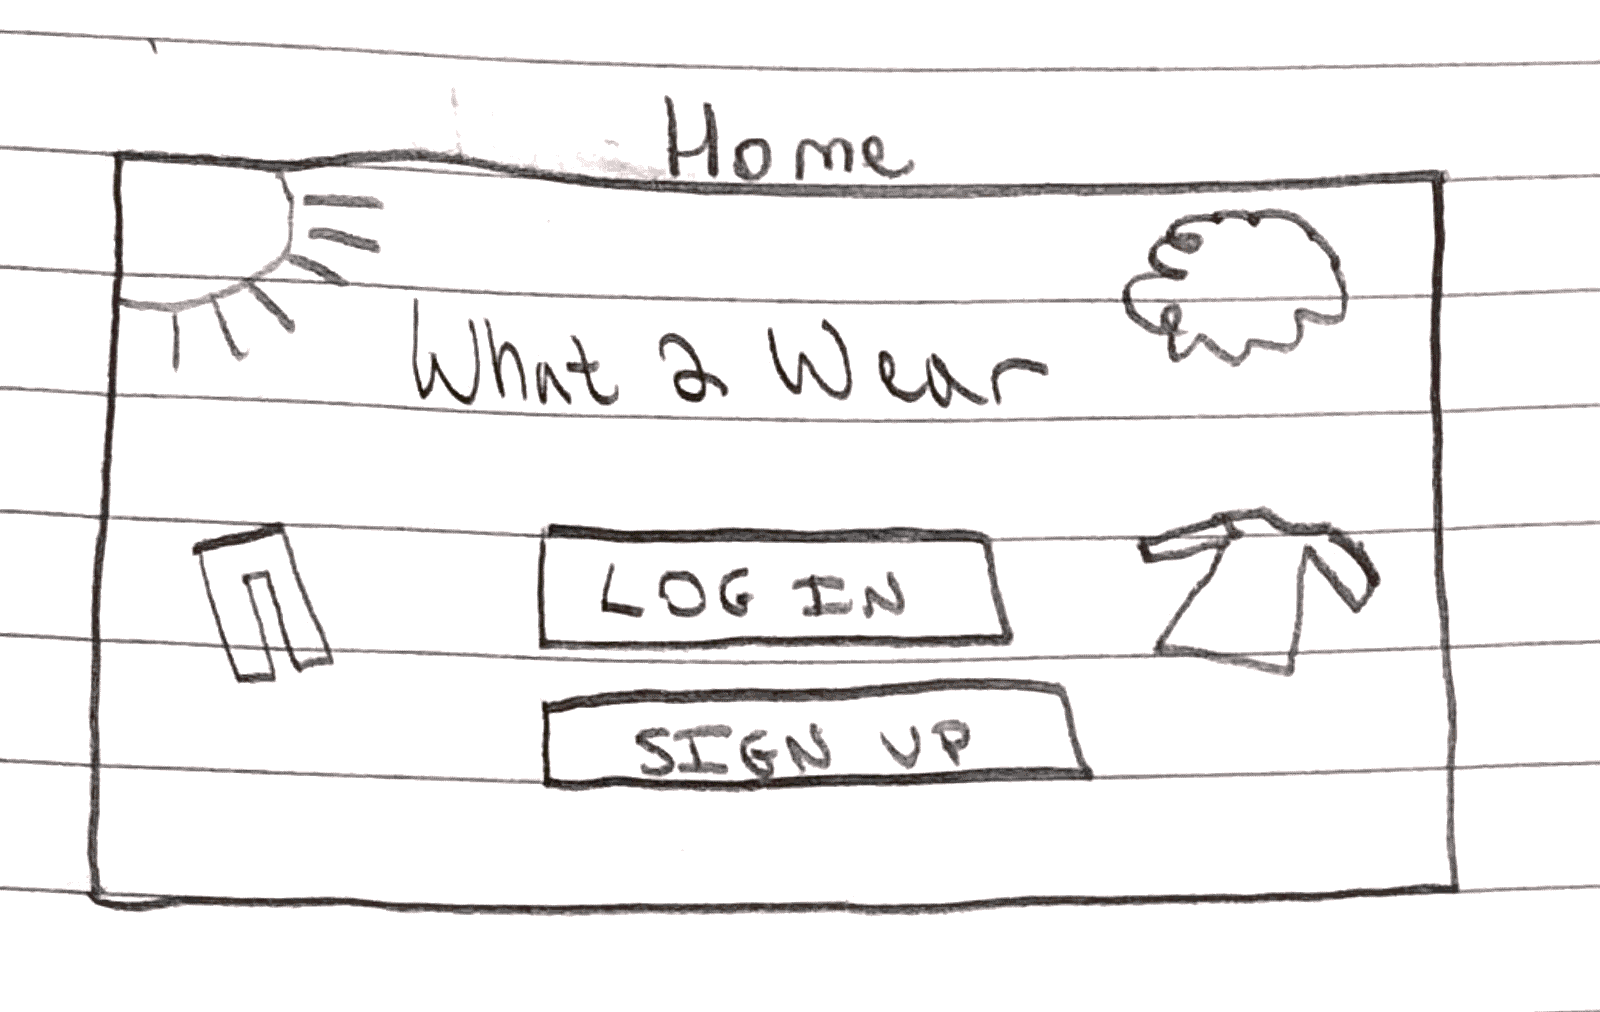 Home
What 2 Wear
LOG IN
SIGN UP